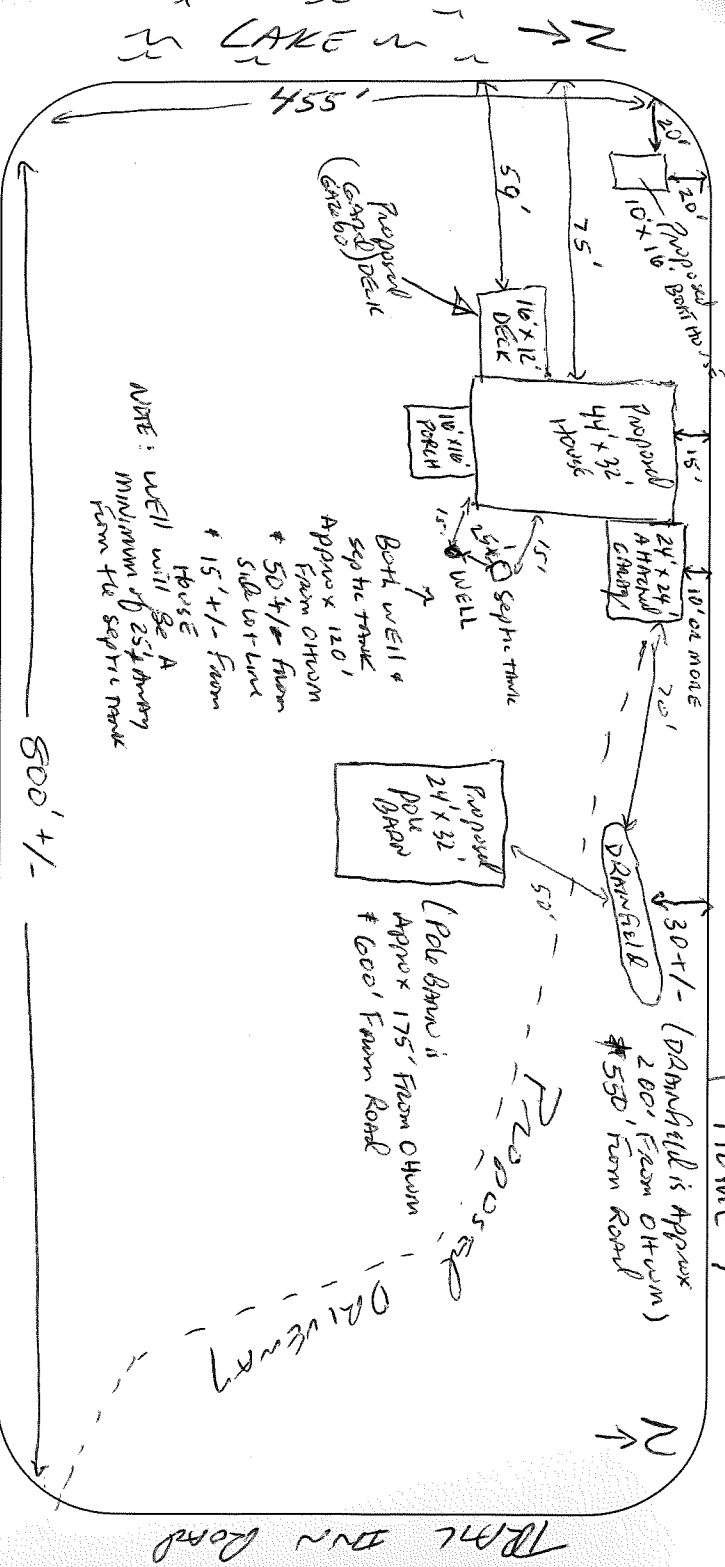 LAKE
N
455'
20'
20'
Proposed
BOAT HOUSE
10' x 16'
59'
75'
Proposed
DECK
(GRAND
GAZEBO)
16' x 12'
DECK
Proposed
44' x 32'
House
15'
10' x 16'
PORCH
24' x 24'
Attached
GARAGE
10' OR MORE
15'
25'
15'
Septic TANK
WELL
Both Well &
septic TANK
Approx 120'
From OHWM
& 50' +/- From
Side Lot Line
& 15' +/- From
House
NOTE: Well will be A
MINIMUM of 25' AWAY
From the septic TANK
70'
DRAINfield
30 +/-
(DRAINfield is Approx
200' From OHWM)
& 550' From ROAD
50'
Proposed
24' x 32'
Pole
BARN
(Pole BARN is
Approx 175' From OHWM
& 600' From ROAD
PROPOSED
DRIVEWAY
800' +/-
N
TRAIL INN ROAD